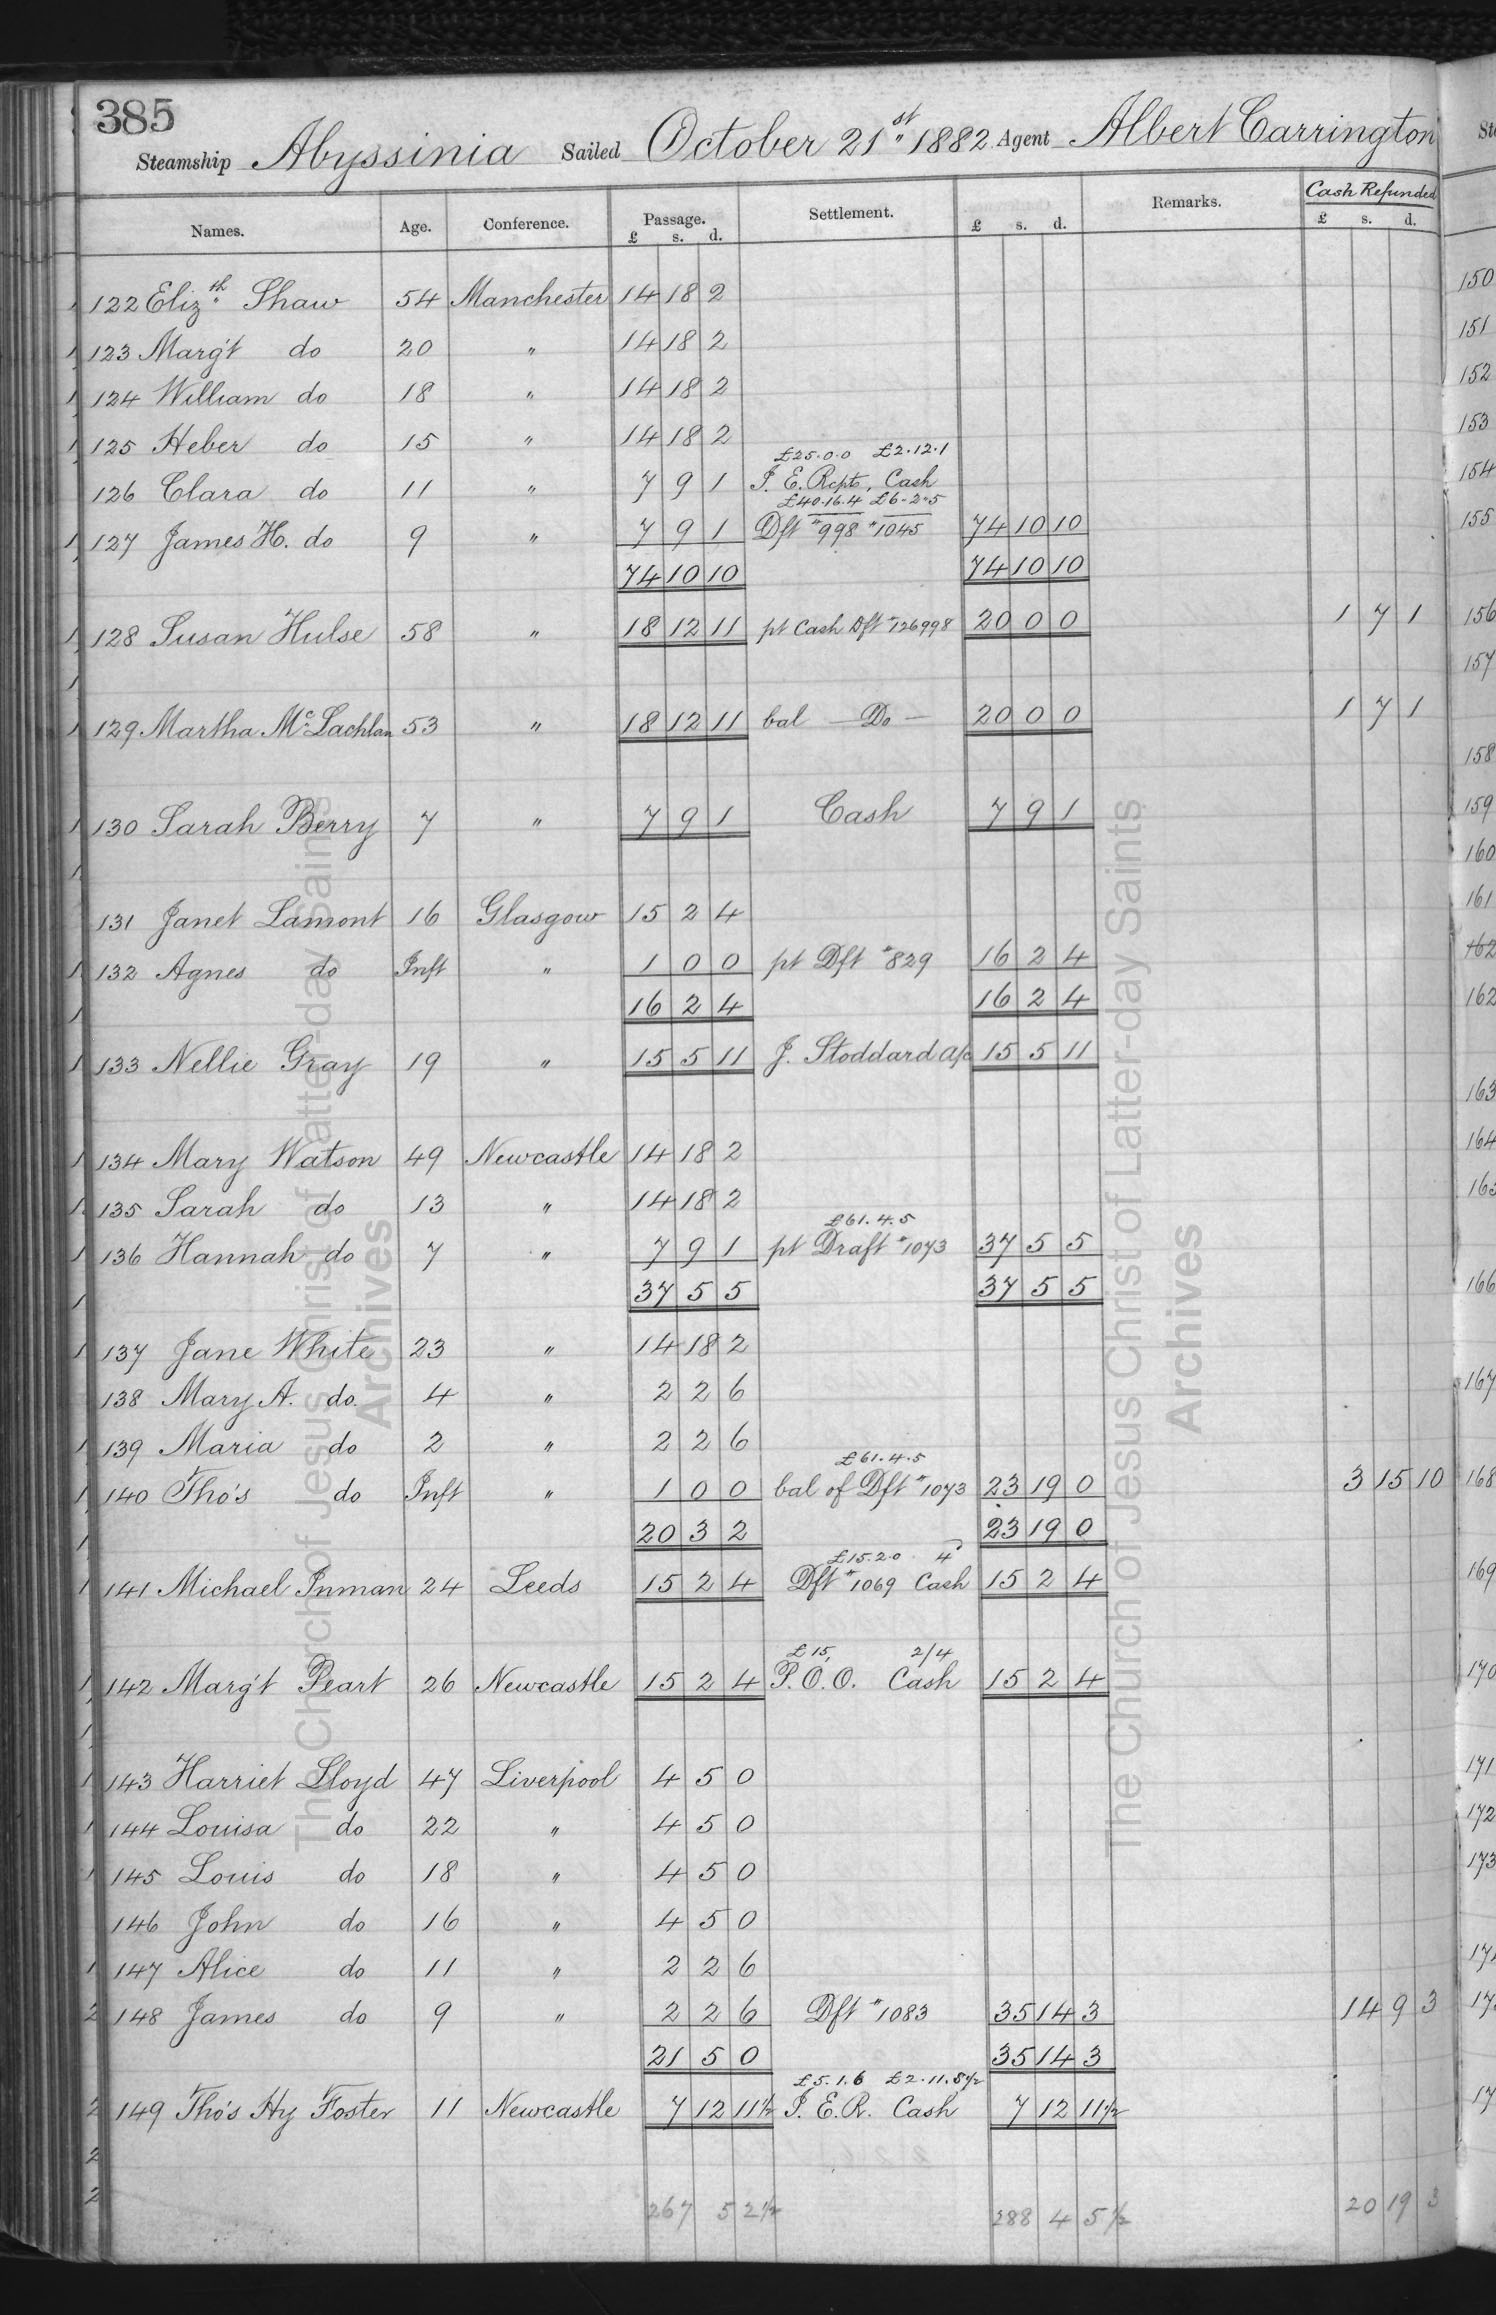 385
Steamship Abyssinia Sailed October 21st 1882 Agent Albert Carrington
Names. Age. Conference. Passage. £ s. d. Settlement. £ s. d. Remarks. Cash Refunded £ s. d.
122 Elizth Shaw 54 Manchester 14 18 2
123 Marg't do 20 " 14 18 2
124 William do 18 " 14 18 2
125 Heber do 15 " 14 18 2
£25.0.0 £2.12.1
126 Clara do 11 " 7 9 1 I. E. Rcpts, Cash
£40.16.4 £6-2-5
127 James H. do 9 " 7 9 1 Dft "998 "1045 74 10 10
74 10 10 74 10 10
128 Susan Hulse 58 " 18 12 11 pt Cash Dft "126998 20 0 0 1 7 1
129 Martha McLachlan 53 " 18 12 11 bal — Do — 20 0 0 1 7 1
130 Sarah Berry 7 " 7 9 1 Cash 7 9 1
131 Janet Lamont 16 Glasgow 15 2 4
132 Agnes do Inft " 1 0 0 pt Dft "829 16 2 4
16 2 4 16 2 4
133 Nellie Gray 19 " 15 5 11 J. Stoddard a/c 15 5 11
134 Mary Watson 49 Newcastle 14 18 2
135 Sarah do 13 " 14 18 2
£61.4.5
136 Hannah do 7 " 7 9 1 pt Draft "1073 37 5 5
37 5 5 37 5 5
137 Jane White 23 " 14 18 2
138 Mary A. do. 4 " 2 2 6
139 Maria do 2 " 2 2 6
£61.4.5
140 Tho's do Inft " 1 0 0 bal of Dft "1073 23 19 0 3 15 10
20 3 2 23 19 0
£15.2.0 4d
141 Michael Inman 24 Leeds 15 2 4 Dft "1069 Cash 15 2 4
£15, 2/4
142 Marg't Peart 26 Newcastle 15 2 4 P.O.O. Cash 15 2 4
143 Harriet Lloyd 47 Liverpool 4 5 0
144 Louisa do 22 " 4 5 0
145 Louis do 18 " 4 5 0
146 John do 16 " 4 5 0
147 Alice do 11 " 2 2 6
148 James do 9 " 2 2 6 Dft "1083 35 14 3 14 9 3
21 5 0 35 14 3
£5.1.6 £2.11.5½
149 Tho's Hy Foster 11 Newcastle 7 12 11½ I. E. R. Cash 7 12 11½
267 5 2½ 288 4 5½ 20 19 3
The Church of Jesus Christ of Latter-day Saints
Archives
The Church of Jesus Christ of Latter-day Saints
Archives
150
151
152
153
154
155
156
157
158
159
160
161
162
162
163
164
165
166
167
168
169
170
171
172
173